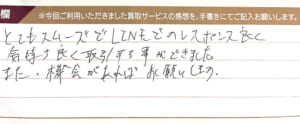 欄
※今回ご利用いただきました買取サービスの感想を、手書きにてご記入お願いします。
とてもスムーズでLINEでのレスポンス良く
気持ち良く取引する事ができました。
また、機会があればお願いします。